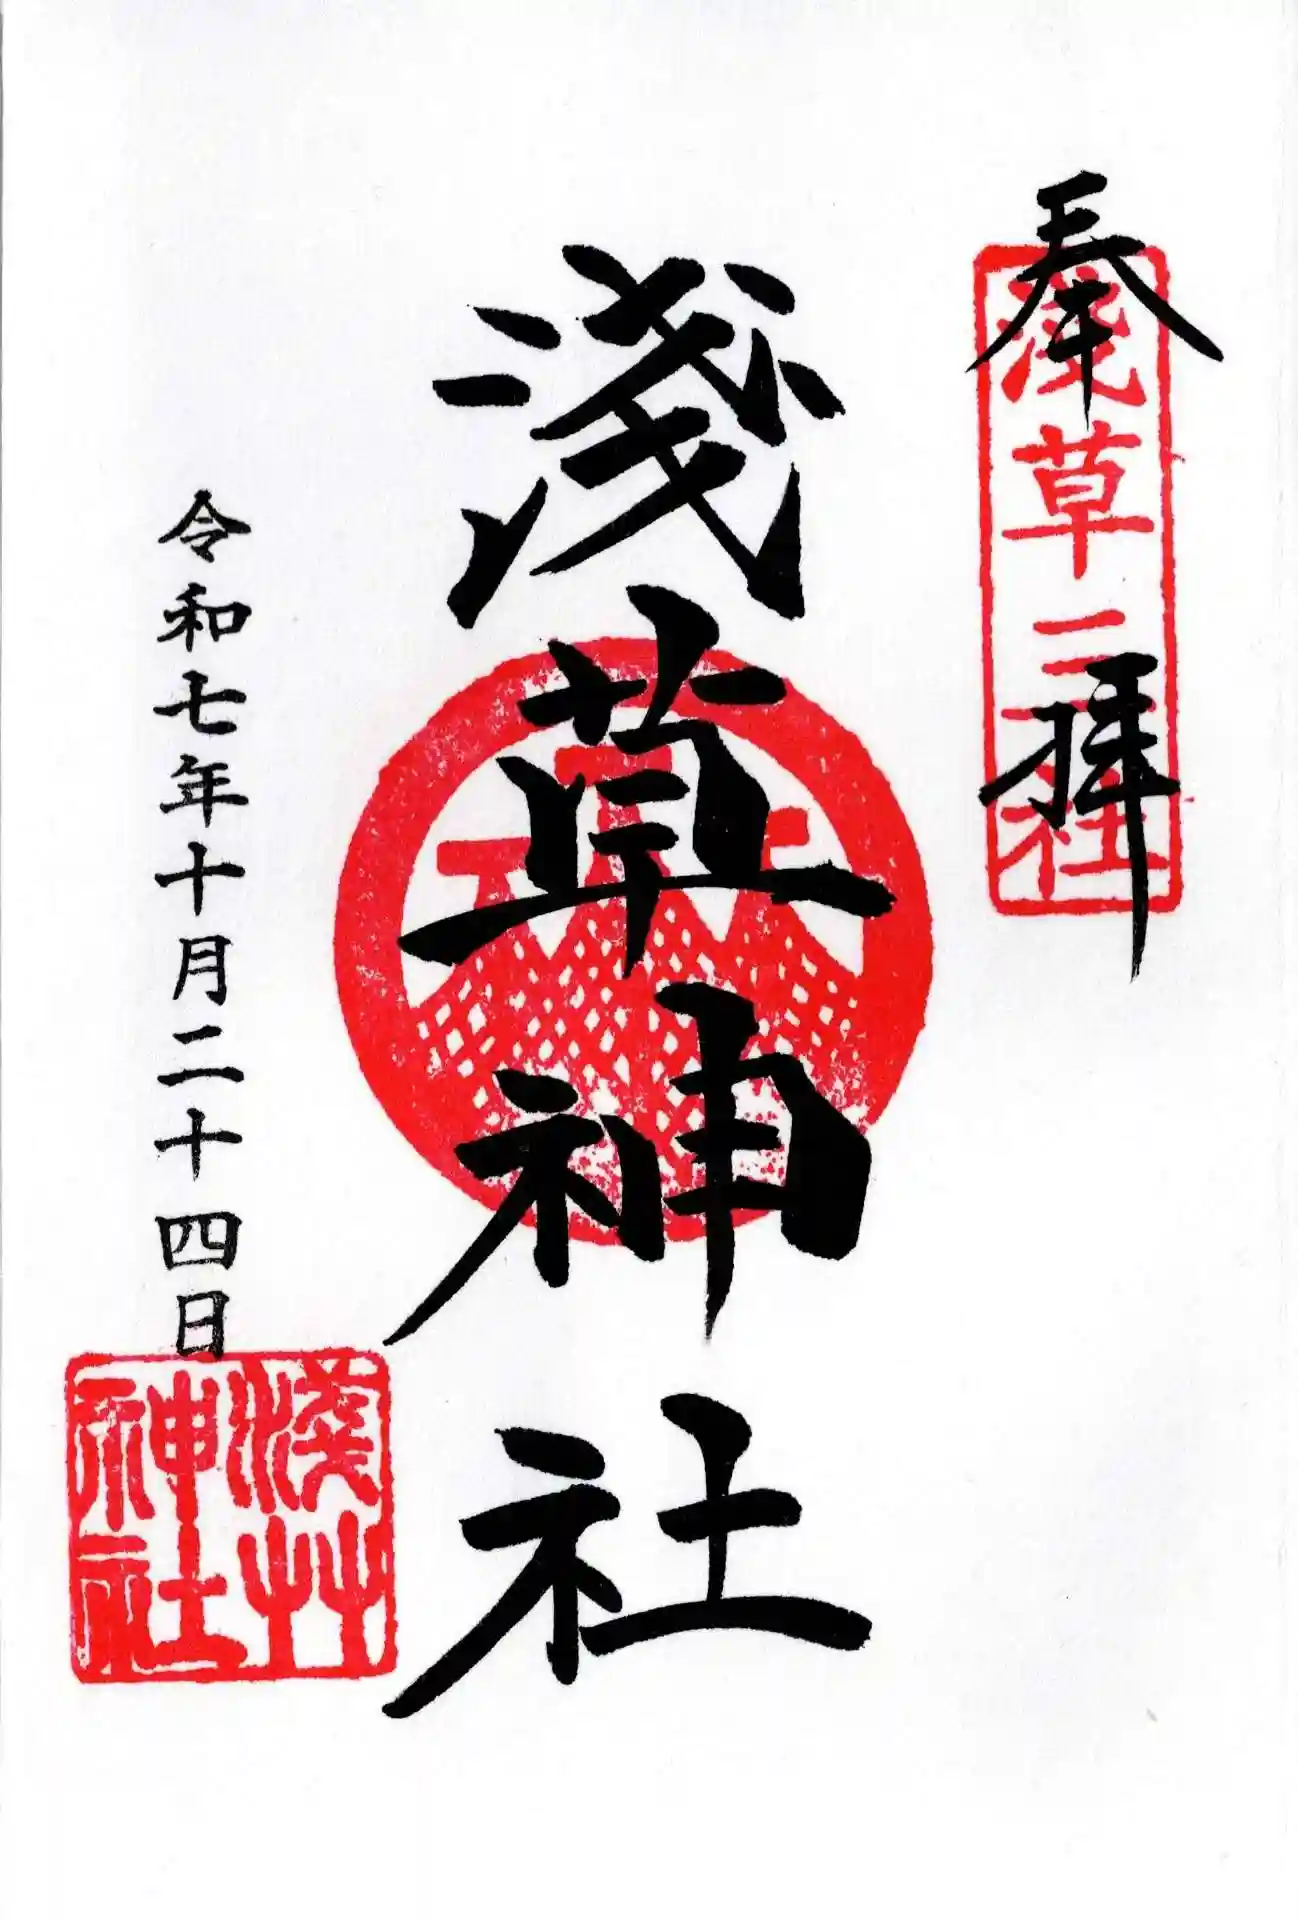 奉拝
淺草三社
淺草神社
令和七年十月二十四日
淺草
神社